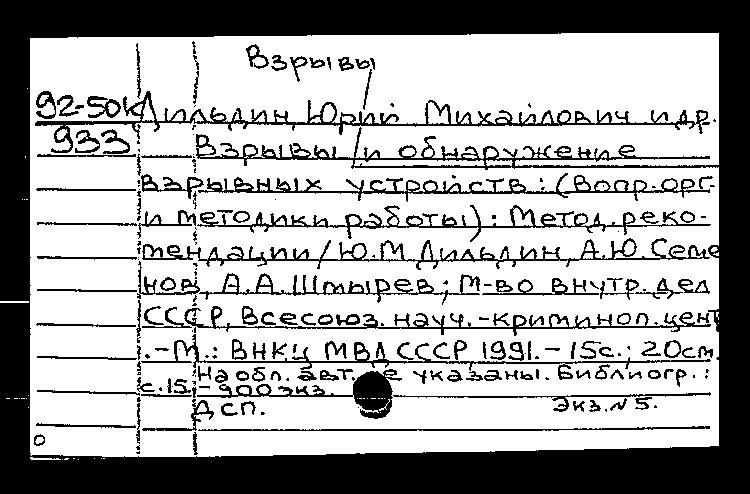 Взрывы
92-50К Дильдин, Юрий Михайлович и др.
933 Взрывы и обнаружение
взрывных устройств: (Вопр. орг.
и методики работы): Метод. реко-
мендации / Ю.М. Дильдин, А.Ю. Семе
нов, А.А. Шмырев; М-во внутр. дел
СССР, Всесоюз. науч.-криминол. цент
.-М.: ВНКЦ МВД СССР, 1991.- 15с.; 20см.
На обл. авт. не указаны. Библиогр.:
с.15. - 900 экз.
ДСП. Экз. N 5.